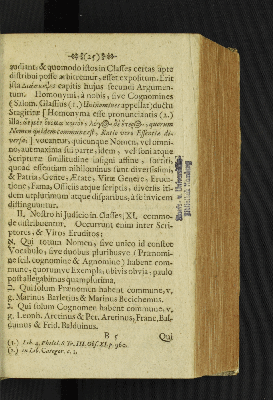 (25)
audiant, & quomodo istos in Classes certas apte
distribui posse arbitremur, esset expositum. Erit
ista capitis hujus secundi Argumen-
tum. Homonymi, à nobis, sive Cognomines
(Salom. Glassius (1.) appellat) ductu
Stagiritæ [Homonyma esse pronunciantis (2.)
illa, quorum
Nomen quidem commune est, Ratio vero Essentiæ di-
versa;] vocantur, quicunque Nomen, vel omni-
no, aut maxima sui parte, idem, vel soni atque
Scripturæ similitudine insigni affine, sortiti,
quoad essentiam nihilominus sunt diversissimi,
& Patria, Gente, Ætate, Vitæ Genere, Erudi-
tione, Fama, Officiis atque scriptis, diversis iti-
dem utplurimum atque disparibus, à se invicem
distinguuntur.
II. Nostro hi Judicio in Classes, XI. commo-
de distribuentur. Occurrunt enim inter Scri-
ptores, & Viros Eruditos;
א. Qui totum Nomen, sive unico id constet
Vocabulo, sive duobus pluribusve (Prænomi-
ne scil. cognomine & Agnomine) habent com-
mune, quorum ve Exempla, ubivis obvia, paulo
post allegabimus quamplurima.
ב. Qui solum Prænomen habent commune, v.
g. Marinus Barletius & Marinus Becichemus.
ג. Qui solum Cognomen habent commune, v.
g. Leonh. Aretinus & Pet. Aretinus, Franc. Bal-
duinus & Frid. Balduinus.
B 5 Qui
(1.) Lib. 4. Philol. S. Tr. III. Obs. XI. p. 960.
(2.) in Lib. Categor. c. 1.